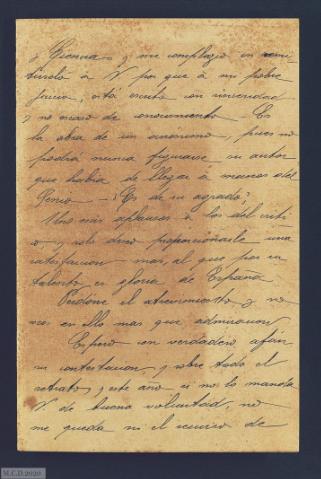 y Gienna, y me complazco en remi-
tírselo à V por que à mi pobre
juicio, está escrito con sinceridad
y no escaso de conocimiento – Es
la obra de un anónimo, pues no
podía nunca figurarse su autor
que había de llegar à manos del
Genio – ¿Es de su agrado?
Uno mis aplausos à los del críti-
co y solo deseo proporcionarle una
satisfaccion mas, al que por su
talento es gloria de España
Perdone el atrevimiento y no
vea en ello mas que admiracion
Espero con verdadero afán
su contestacion, y sobre todo el
retrato, y este año si no lo manda
V de buena voluntad, no
me queda ni el recurso de
M.C.D. 2020